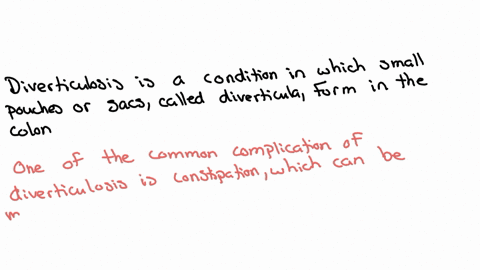 Diverticulosis is a condition in which small
pouches or sacs, called diverticula, form in the
colon
One of the common complication of
diverticulosis is constipation, which can be
m